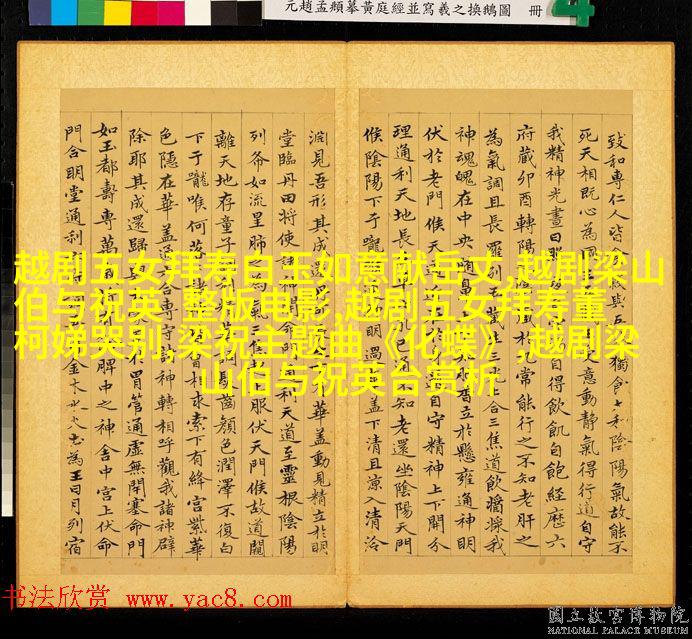 元趙孟頫摹黃庭經並寫羲之換鵝圖 冊
致和專仁人皆 與五 獨食太和陰陽氣故能不
死天相既心為國 意動靜氣得行道自守
我精神光晝日昭 自得飲飢自飽經歷六
府藏卯酉轉陽 常能行之不知老肝之
為氣調且長羅列五藏生三光上合三焦道飲醬漿我
神魂魄在中央 香立於懸雍通神明
伏於老門候天道 自守精神上下開分
理通利天地長生草七孔已通不知老還坐陰陽天門
候陰陽下于嚨 神明過華蓋下清且涼入清泠
淵見吾形其成還 華蓋動見精立於明
堂臨丹田將使諸神開命門通利天道至靈根陰陽
列布如流星肺之為氣三焦起 服伏天門候故道闚
離天地存童子 髮齒顏色潤澤不復白
下于嚨喉何落 相求索下有絳宮紫華
色隱在華蓋通六合專守諸神轉相呼觀我諸神辟
除耶其成還歸 胃管通虛無閉塞命門
如玉都壽專萬歲 脾中之神舍中宮上伏命
門合明堂通利 金木水火土為王日月列宿
越剧五女拜寿白玉如意献岳丈,越剧梁山
伯与祝英 整版电影,越剧五女拜寿董
柯娣哭别,梁祝主题曲《化蝶》,越剧梁
山伯与祝英台赏析
书法欣赏 www.yac8.com
國立故宮博物院
NATIONAL PALACE MUSEUM